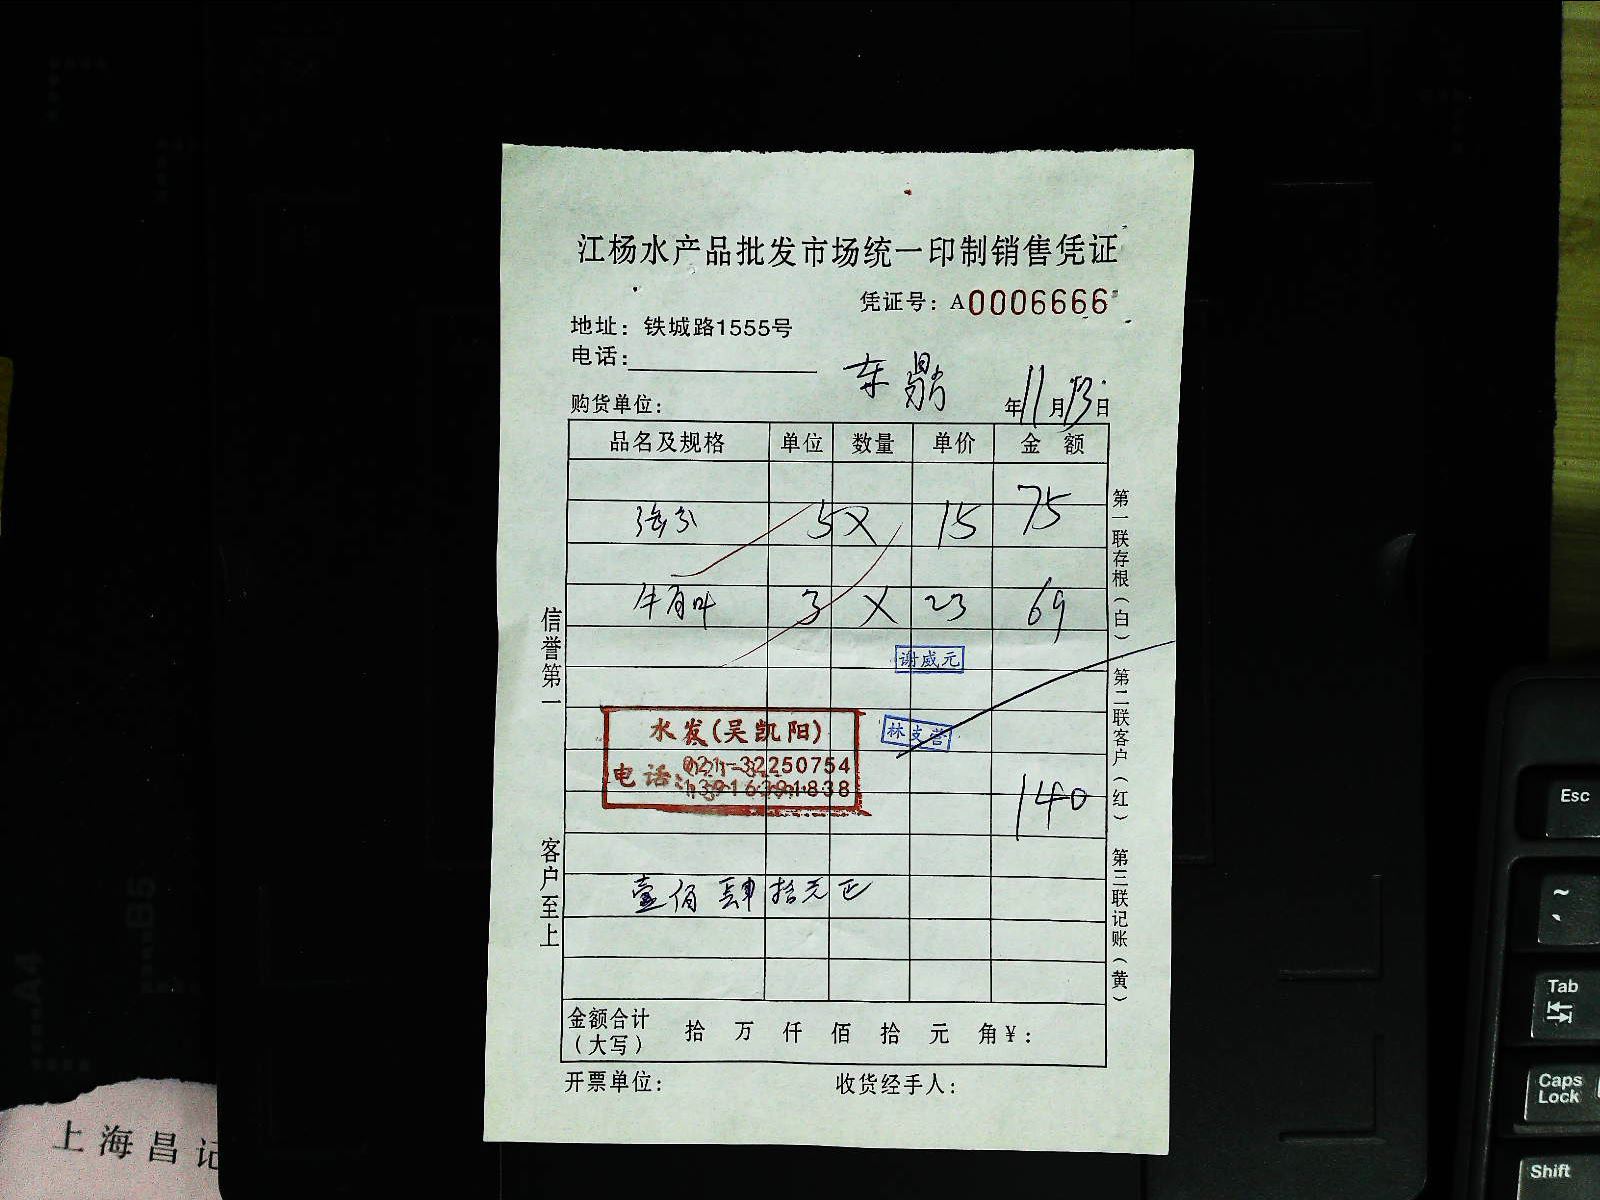 江杨水产品批发市场统一印制销售凭证
凭证号：A0006666
地址：铁城路1555号
电话：
东鼎
购货单位：
年11月13日
品名及规格 单位 数量 单价 金 额
5X 15 75
牛百叶 3 X 23 69
谢威元
水发(吴凯阳)
电话：021-32250754
13916391838
林支
140
壹佰肆拾元正
金额合计
(大写)
拾 万 仟 佰 拾 元 角￥：
开票单位：
收货经手人：
信誉第一
客户至上
第一联存根(白)
第二联客户(红)
第三联记账(黄)
上海昌记
A4
B5
Esc
~
Tab
Caps
Lock
Shift